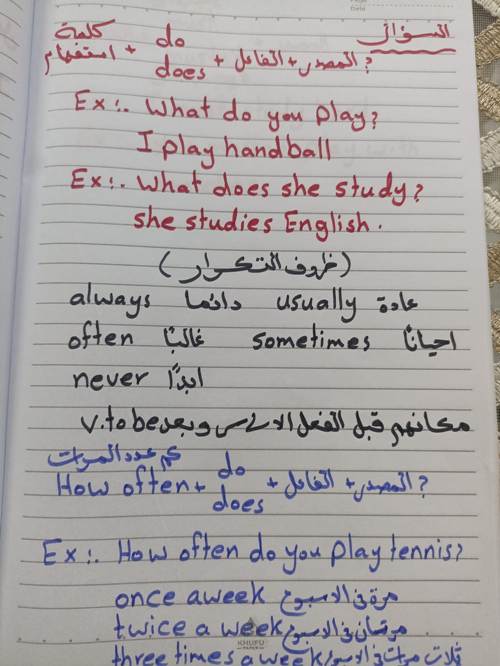 السؤال
كلمة استفهام + do does + الفاعل + المصدر ?
Ex:. What do you play?
I play handball
Ex:. What does she study?
she studies English.
(ظروف التكرار)
always دائما usually عادة
often غالبًا sometimes احيانًا
never ابدًا
مكانهم قبل الفعل الاساسى وبعد v.to be
كم عدد المرات
How often + do does + الفاعل + المصدر ?
Ex:. How often do you play tennis?
once aweek مرة فى الاسبوع
twice a week مرتان فى الاسبوع
KHUFU
three times a week ثلاث مرات فى الاسبوع